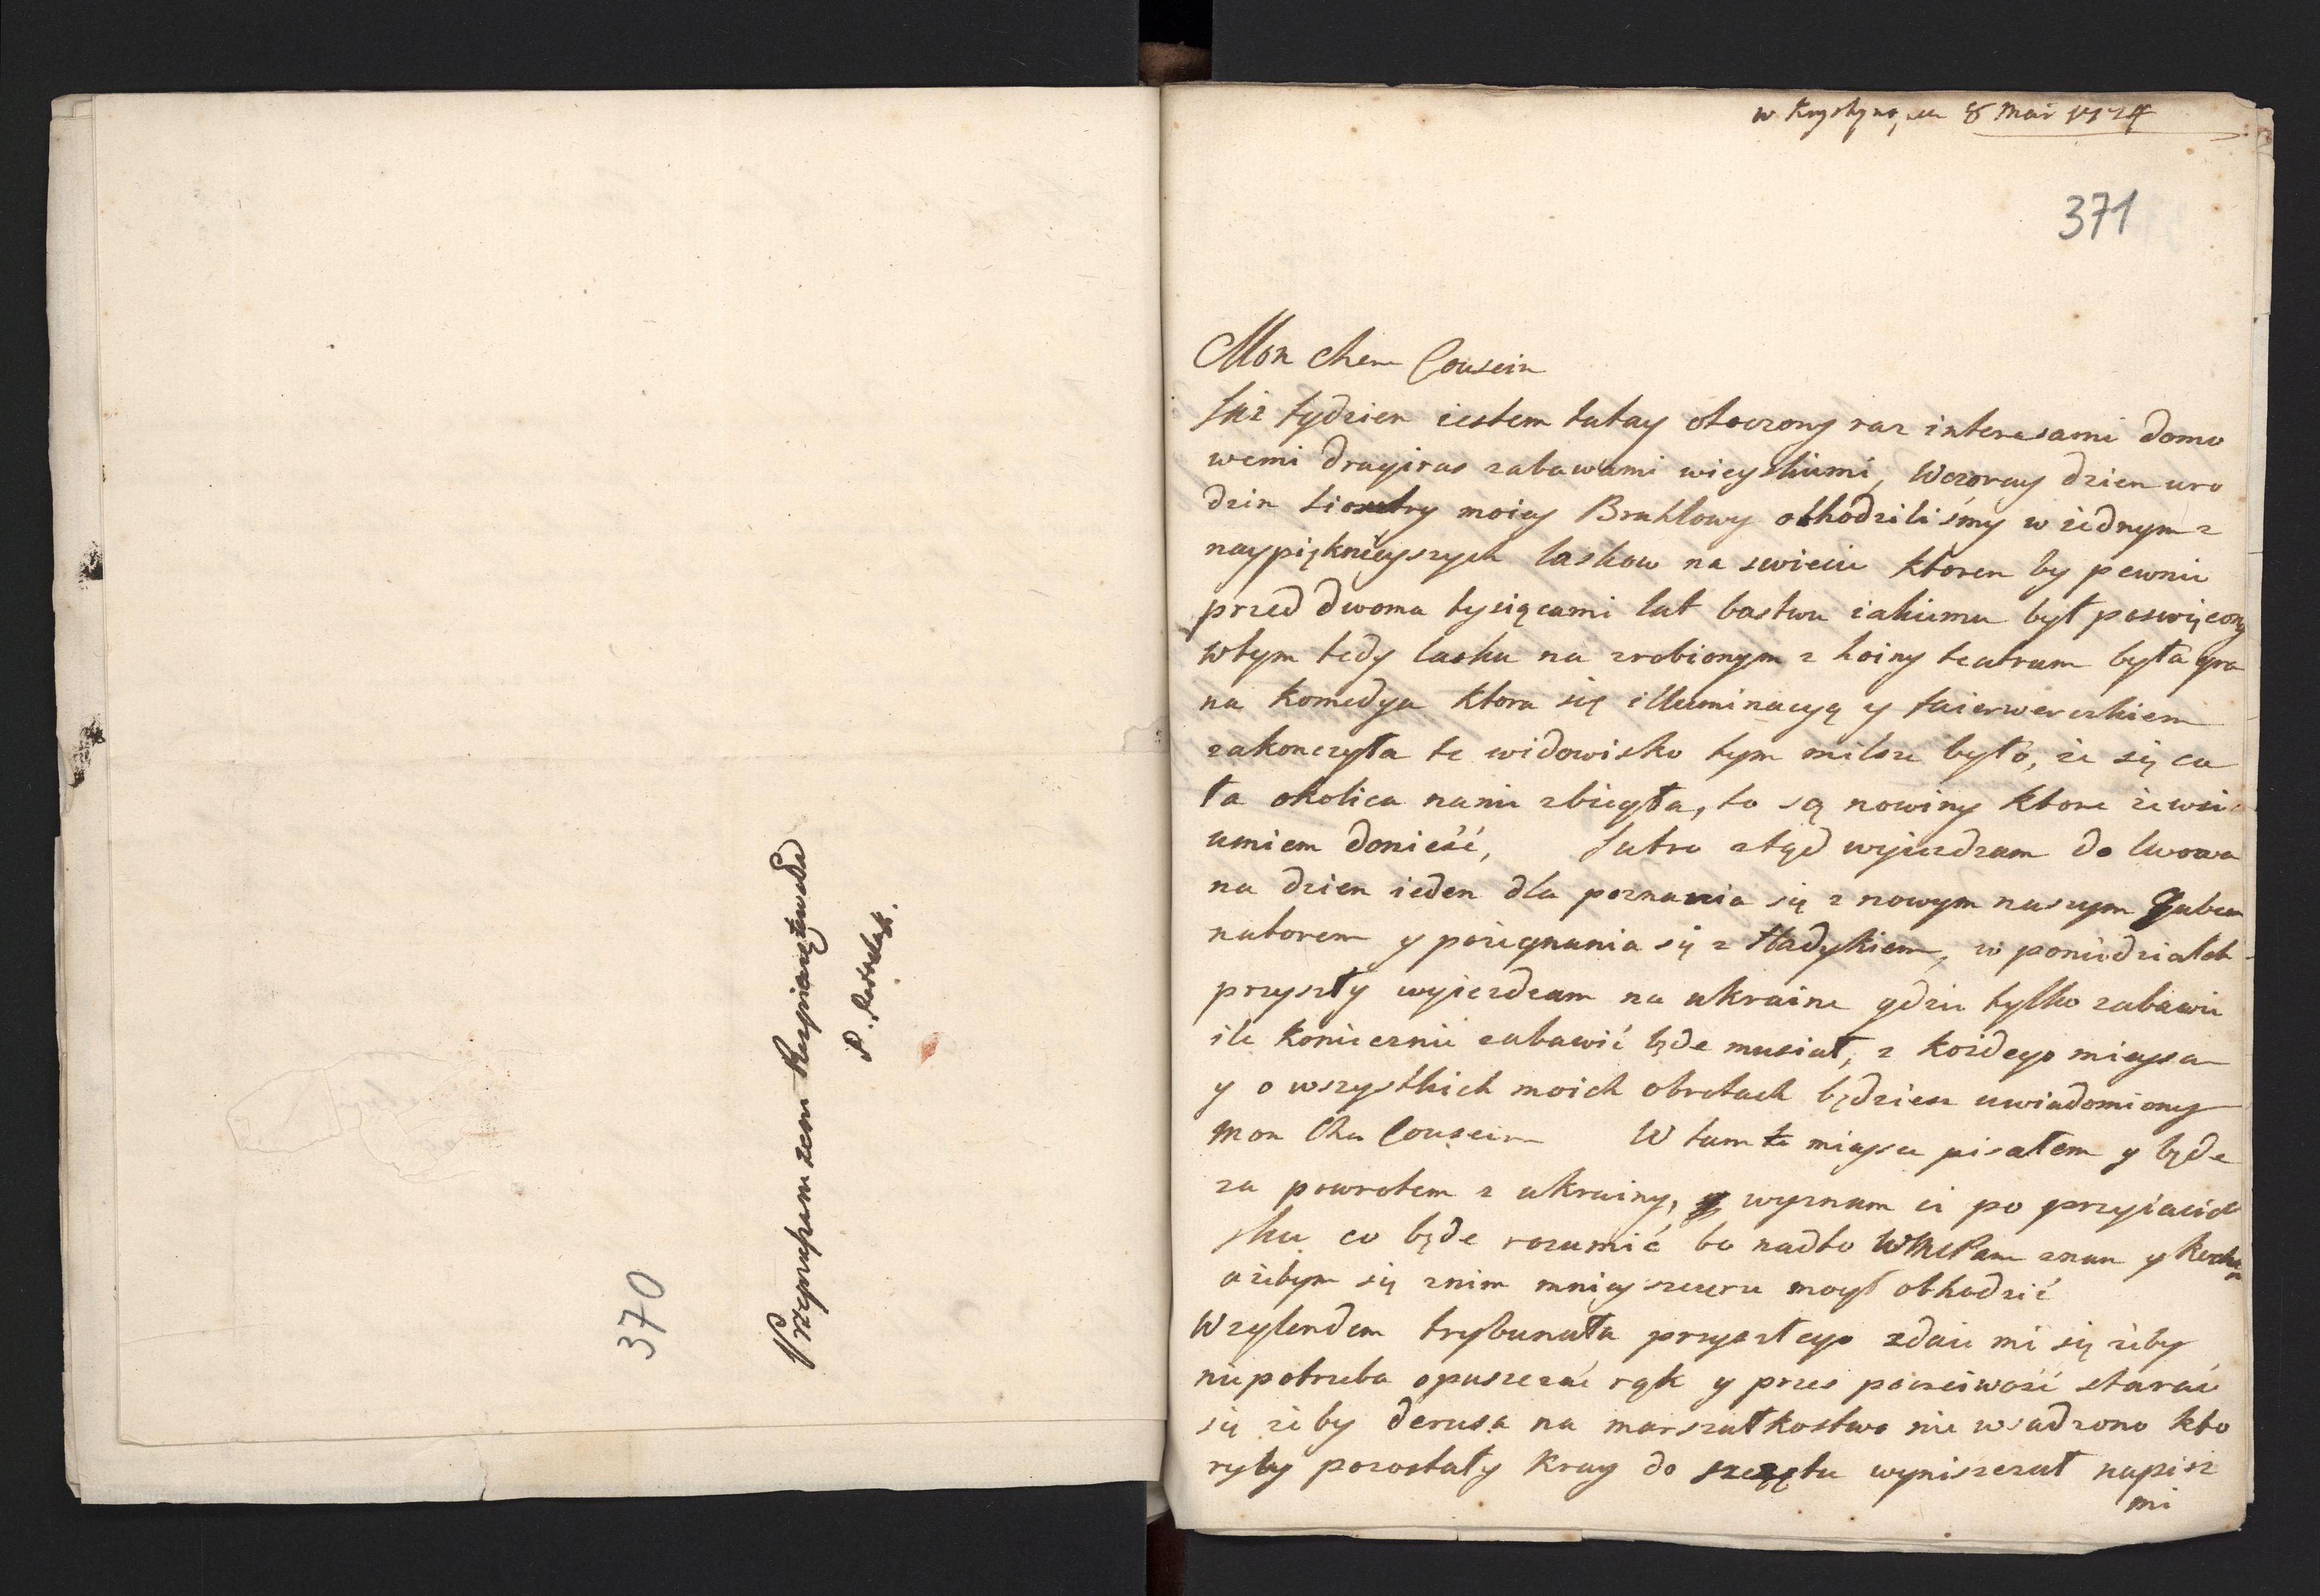 370
Przepraszam zem Rozpieczętował
P.
w Krystyno 8 Mai 1774
371
Mon cher Cousein
Juz tydzien iestem tutay otoczony raz interesami domo
wemi drugiraz zabawami wieyskiemi, Wczoray dzien uro
dzin siostry moiey Bruhlowy obhodziliśmy w iednym z
naypięknieyszych laskow na swiecie ktoren by pewnie
przed dwoma tysiącami lat bostwu iakiemu był poswięcony
wtym tedy lasku na zrobionym z hoiny teatrum była gra
na komedya ktora się illuminacyą y faierwerczkiem
zakonczyła te widowisko tym milsze było, ze się ca
ła okolica nanie zbiegła, to są nowiny ktore ze wsi
umiem donieść, Jutro ztąd wyiezdzam do lwowa
na dzien ieden dla poznania się z nowym naszym Guber
natorem y pozegnania się z Hadykiem, w poniedzialek
przyszły wyiezdzam na ukraine gdzie tylko zabawie
ile koniecznie zabawić będe musiał, z kozdego mieysca
y o wszystkich moich obrotach będziesz uwiadomiony
mon Cher Cousein W tamte mieysce pisałem y będe
za powrotem z ukrainy, wyznam ci po przyiaciel
sku co będe rozumić bo nadto WMcPana znam y kocham
azebym się znim mniey szczerze mogł obhodzić
Wzglendem trybunału przyszłego zdaie mi się zeby
niepotrzeba opuszczać rąk y przez poczciwość starać
się zeby derusa na marszałkostwo nie wsadzono kto
ryby pozostały kray do szczętu wyniszczał napisz
mi